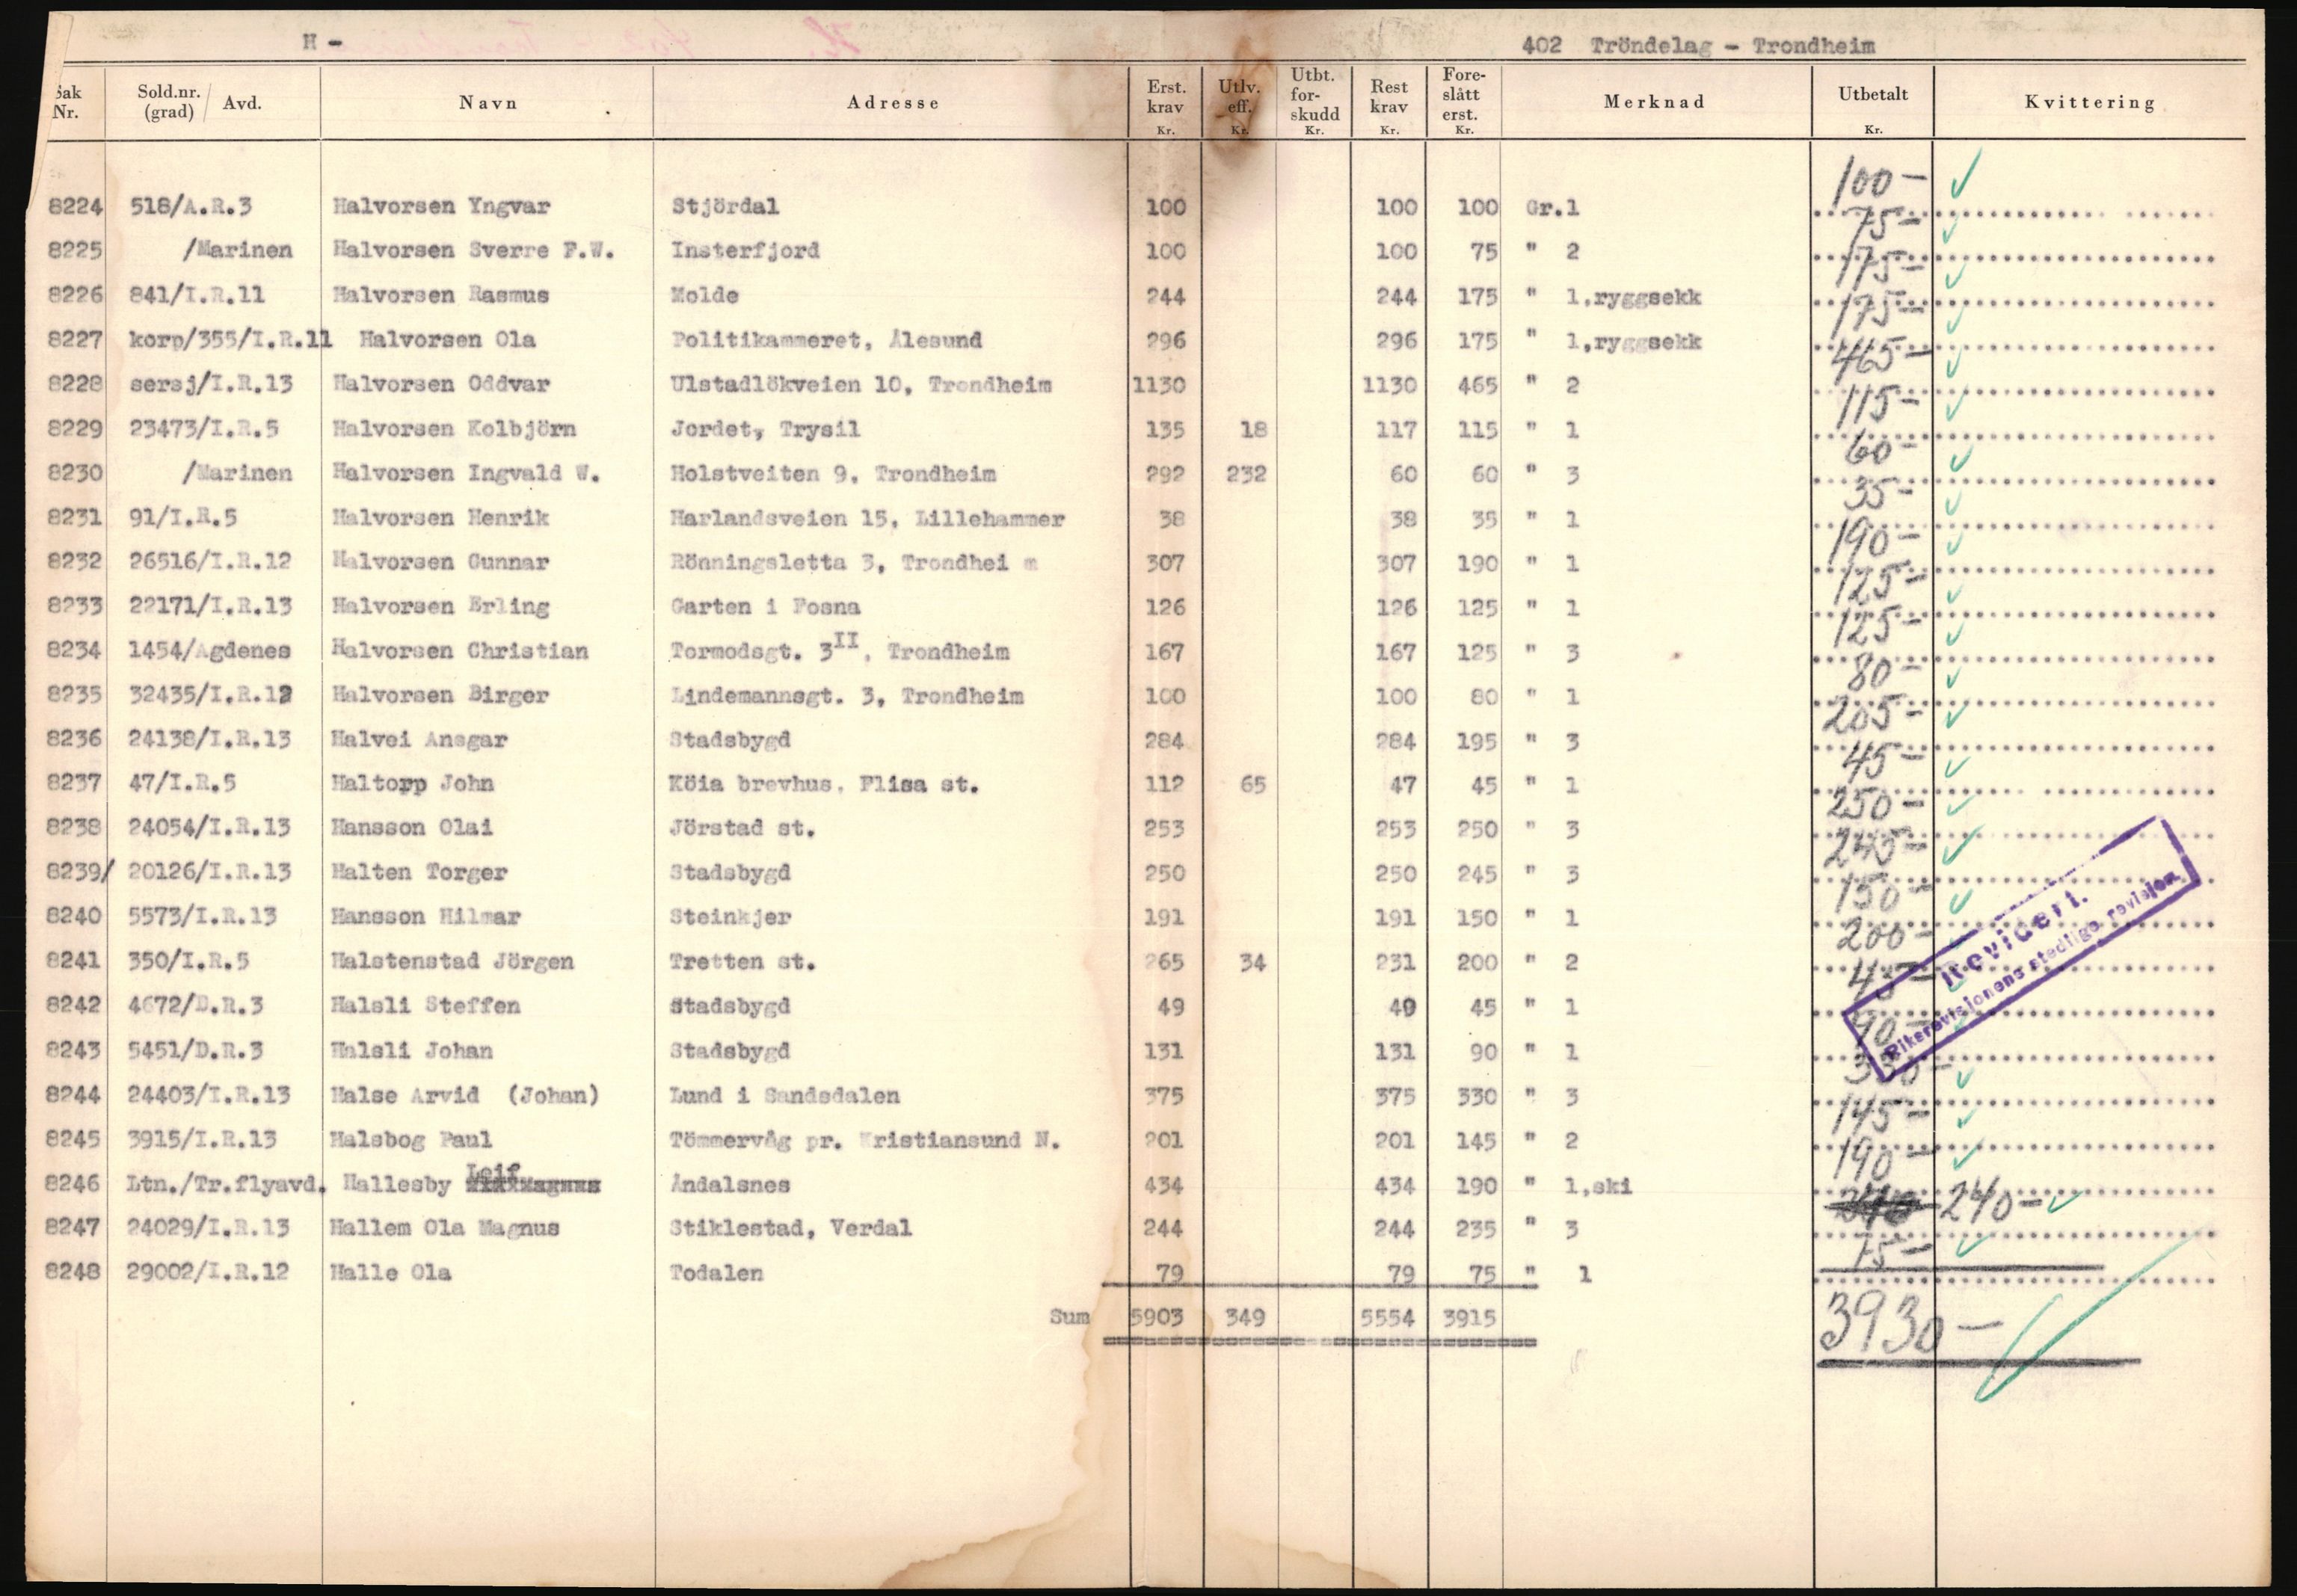 H -
402 Tröndelag - Trondheim
Sak Nr. Sold.nr. (grad) / Avd. Navn Adresse Erst. krav Kr. Utlv. eff. Kr. Utbt. for- skudd Kr. Rest krav Kr. Fore- slått erst. Kr. Merknad Utbetalt Kr. Kvittering
8224 518/A.R.3 Halvorsen Yngvar Stjördal 100 100 100 Gr.1 100-
8225 /Marinen Halvorsen Sverre F.W. Insterfjord 100 100 75 " 2 75-
8226 841/I.R.11 Halvorsen Rasmus Molde 244 244 175 " 1,ryggsekk 175-
8227 korp/355/I.R.11 Halvorsen Ola Politikammeret, Ålesund 296 296 175 " 1,ryggsekk 175-
8228 sersj/I.R.13 Halvorsen Oddvar Ulstadlökveien 10, Trondheim 1130 1130 465 " 2 465-
8229 23473/I.R.5 Halvorsen Kolbjörn Jordet, Trysil 135 18 117 115 " 1 115-
8230 /Marinen Halvorsen Ingvald W. Holstveiten 9, Trondheim 292 232 60 60 " 3 60-
8231 91/I.R.5 Halvorsen Henrik Harlandsveien 15, Lillehammer 38 38 35 " 1 35-
8232 26516/I.R.12 Halvorsen Gunnar Rönningsletta 3, Trondhei m 307 307 190 " 1 190-
8233 22171/I.R.13 Halvorsen Erling Garten i Fosna 126 126 125 " 1 125-
8234 1454/Agdenes Halvorsen Christian Tormodsgt. 3II, Trondheim 167 167 125 " 3 125-
8235 32435/I.R.12 Halvorsen Birger Lindemannsgt. 3, Trondheim 100 100 80 " 1 80-
8236 24138/I.R.13 Halvei Ansgar Stadsbygd 284 284 195 " 3 205-
8237 47/I.R.5 Haltorp John Köia brevhus, Flisa st. 112 65 47 45 " 1 45-
8238 24054/I.R.13 Hansson Olai Jörstad st. 253 253 250 " 3 250-
8239/ 20126/I.R.13 Halten Torger Stadsbygd 250 250 245 " 3 245-
8240 5573/I.R.13 Hansson Hilmar Steinkjer 191 191 150 " 1 150-
8241 350/I.R.5 Halstenstad Jörgen Tretten st. 265 34 231 200 " 2 200-
8242 4672/D.R.3 Halsli Steffen Stadsbygd 49 49 45 " 1 45-
8243 5451/D.R.3 Halsli Johan Stadsbygd 131 131 90 " 1 90-
8244 24403/I.R.13 Halse Arvid (Johan) Lund i Sandsdalen 375 375 330 " 3 330-
8245 3915/I.R.13 Halsbog Paul Tömmervåg pr. Kristiansund N. 201 201 145 " 2 145-
8246 Ltn./Tr.flyavd. Hallesby Leif Åndalsnes 434 434 190 " 1,ski 190-
8247 24029/I.R.13 Hallem Ola Magnus Stiklestad, Verdal 244 244 235 " 3 240-
8248 29002/I.R.12 Halle Ola Todalen 79 79 75 " 1 75-
Sum 5903 349 5554 3915 3930-
Revidert.
Riksrevisjonens stedlige revisjon